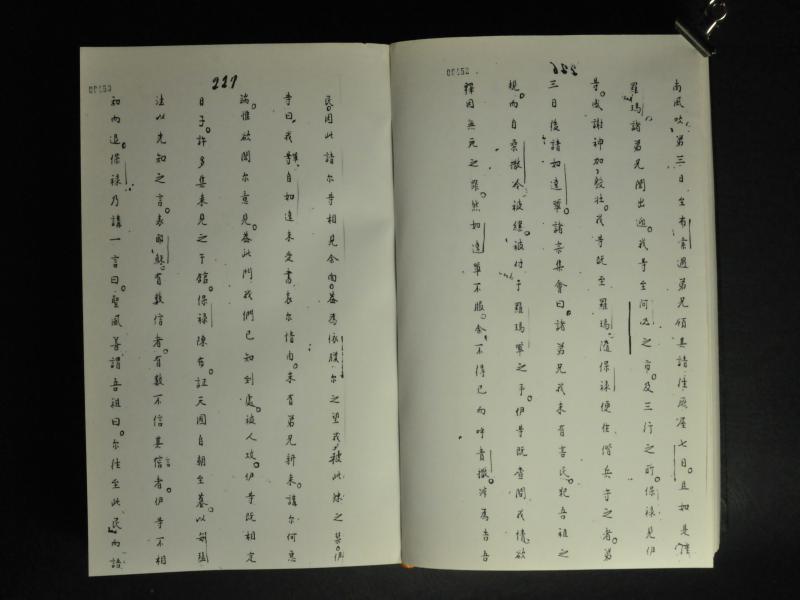 226
南風吹第三日至布索遇弟兄煩其請住底屋七日且如是
羅瑪諸弟兄聞出迎我等至何必之市及三行之所保祿見伊
等感謝神加毅壯我等既至羅瑪隨保祿便住偕兵守之者第
三日後請如達軍諸宗集會曰諸弟兄我未有害民犯吾祖之
規而自柔撒冷被縲被付于羅瑪軍之手伊等既查問我情欲
釋因無死之罪然如達軍不服余不得已而呼責撒
227
民因此請尔等相見余向蓋為依臘尔之望我被此煉之
等曰我等自如達未受書表尔情由未有弟兄新來講尔何惡
端惟欲聞尔意見蓋此門我們已知到處被人攻伊等既相定
日子許多集來見之于館保祿陳布証天國自朝至暮以每瑟
法以先知之言表耶穌有數信者有數不信其言者伊等不相
和而退保祿乃講一言曰聖風善謂吾祖曰尔往至此民而語